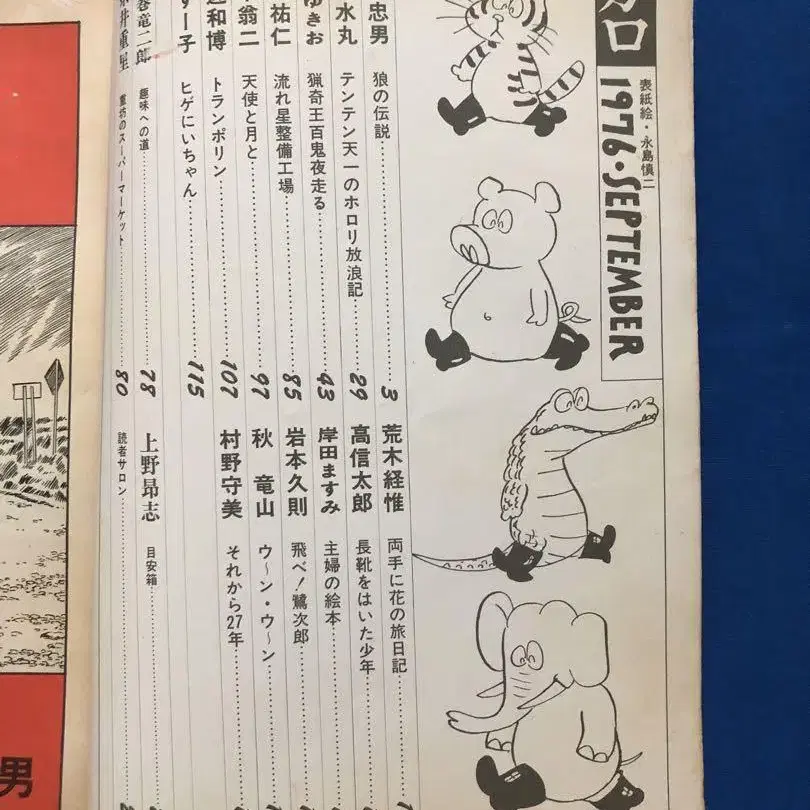 ガロ
1976・SEPTEMBER
表紙絵・永島慎二
忠男 狼の伝説 3
水丸 テンテン天一のホロリ放浪記 29
ゆきお 猟奇王百鬼夜走る 43
祐仁 流れ星整備工場 85
翁二 天使と月と 97
和博 トランポリン 107
すー子 ヒゲにいちゃん 115
竜二郎 趣味への道 78
井重里 重坊のスーパーマーケット 80
荒木経惟 両手に花の旅日記
高信太郎 長靴をはいた少年
岸田ますみ 主婦の絵本
岩本久則 飛べ!鷺次郎
秋竜山 ウ〜ン・ウ〜ン
村野守美 それから27年
上野昻志 目安箱
読者サロン
男